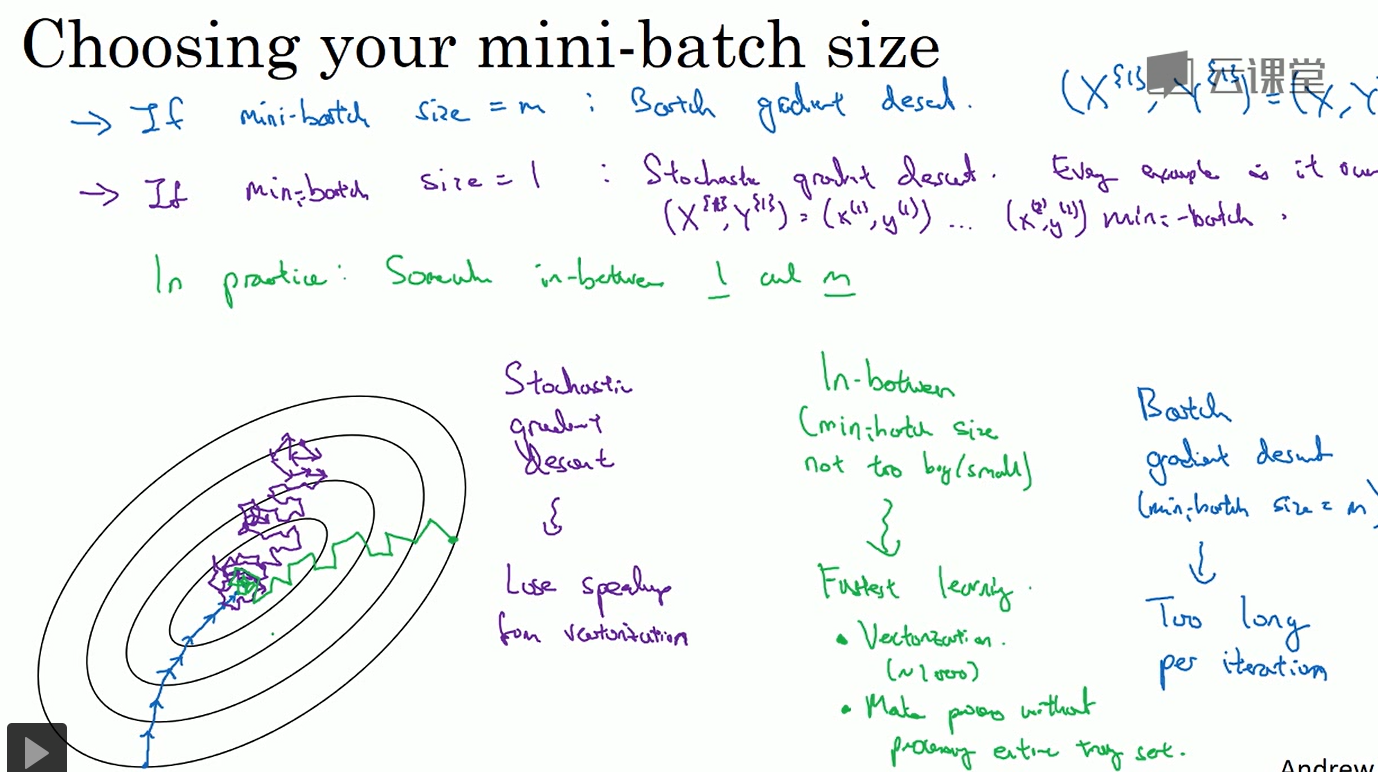 Choosing your mini-batch size
云课堂
→ If mini-batch size = m : Batch gradient descent. (X^{1}, Y^{1}) = (X, Y
→ If mini-batch size = 1 : Stochastic gradient descent. Every example is it own
(X^{1}, Y^{1}) = (x^(1), y^(1)) ... (x^(2), y^(2)) mini-batch.
In practice: Somewhere in-between 1 and m
Stochastic
gradient
descent
Lose speedup
from vectorization
In-between
(mini-batch size
not too big/small)
Fastest learning.
• Vectorization.
(~1000)
• Make progress without
processing entire training set.
Batch
gradient descent
(mini-batch size = m)
Too long
per iteration
Andrew